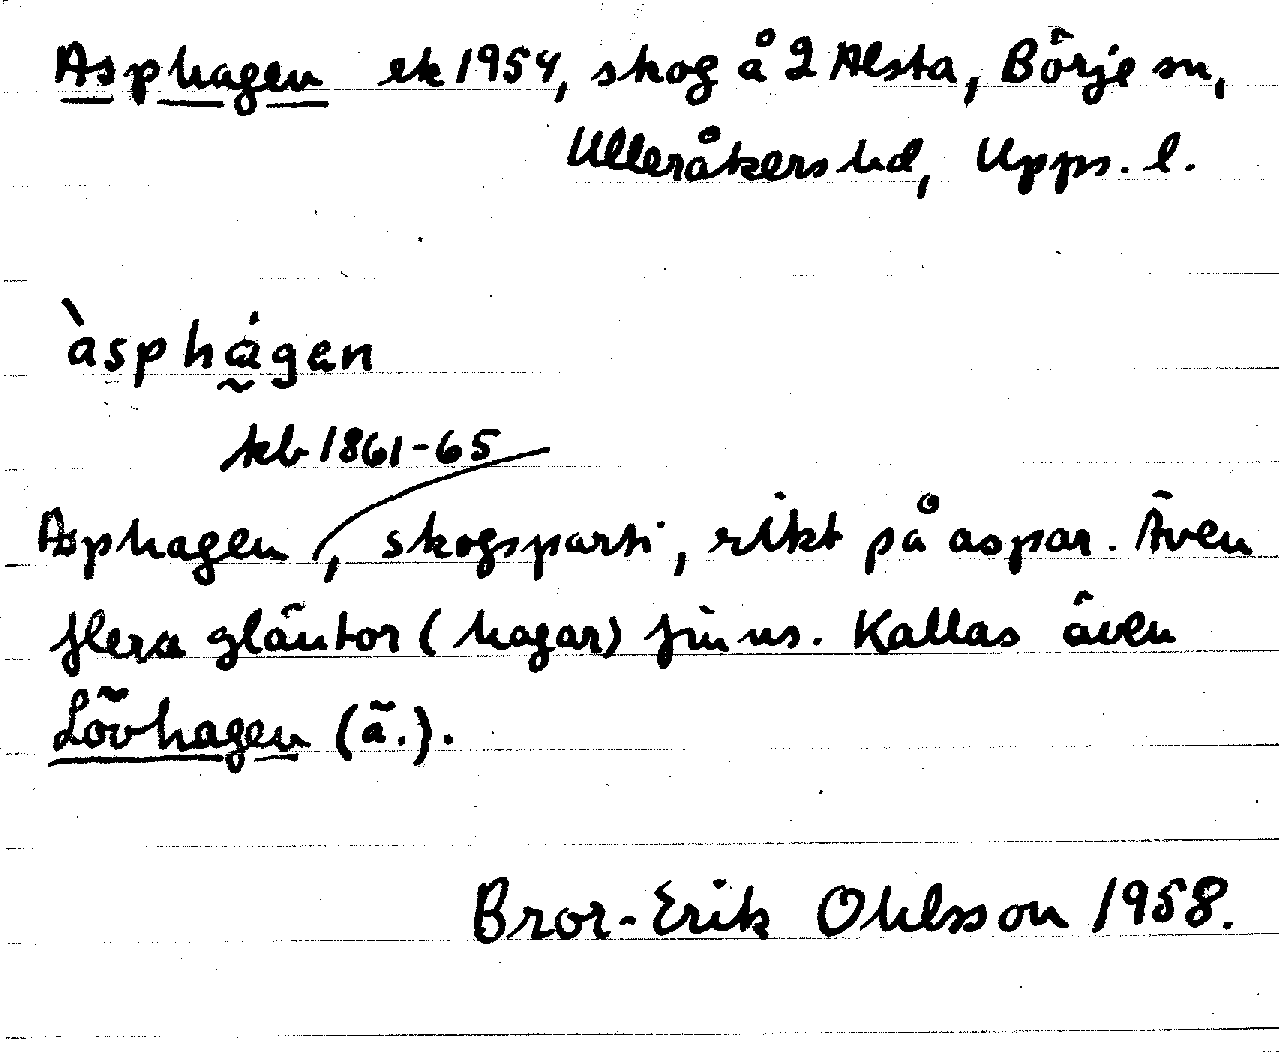 Asphagen ek 1954, skog å 2 Alsta, Börje sn,
Ulleråkers hd, Upps. l.
àsphá̰gen
kb 1861-65
Asphagen, skogsparti, rikt på aspar. Även
flera gläntor (hagar) finns. Kallas även
Lövhagen (ä.).
Bror-Erik Ohlsson 1958.